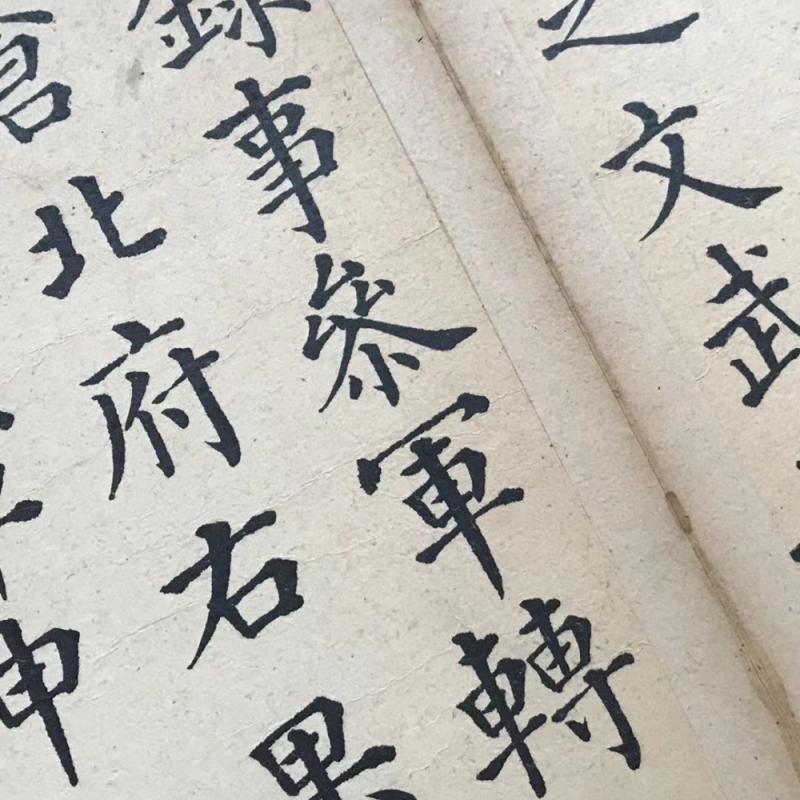 之文武
錄事參軍轉
北府右果
申